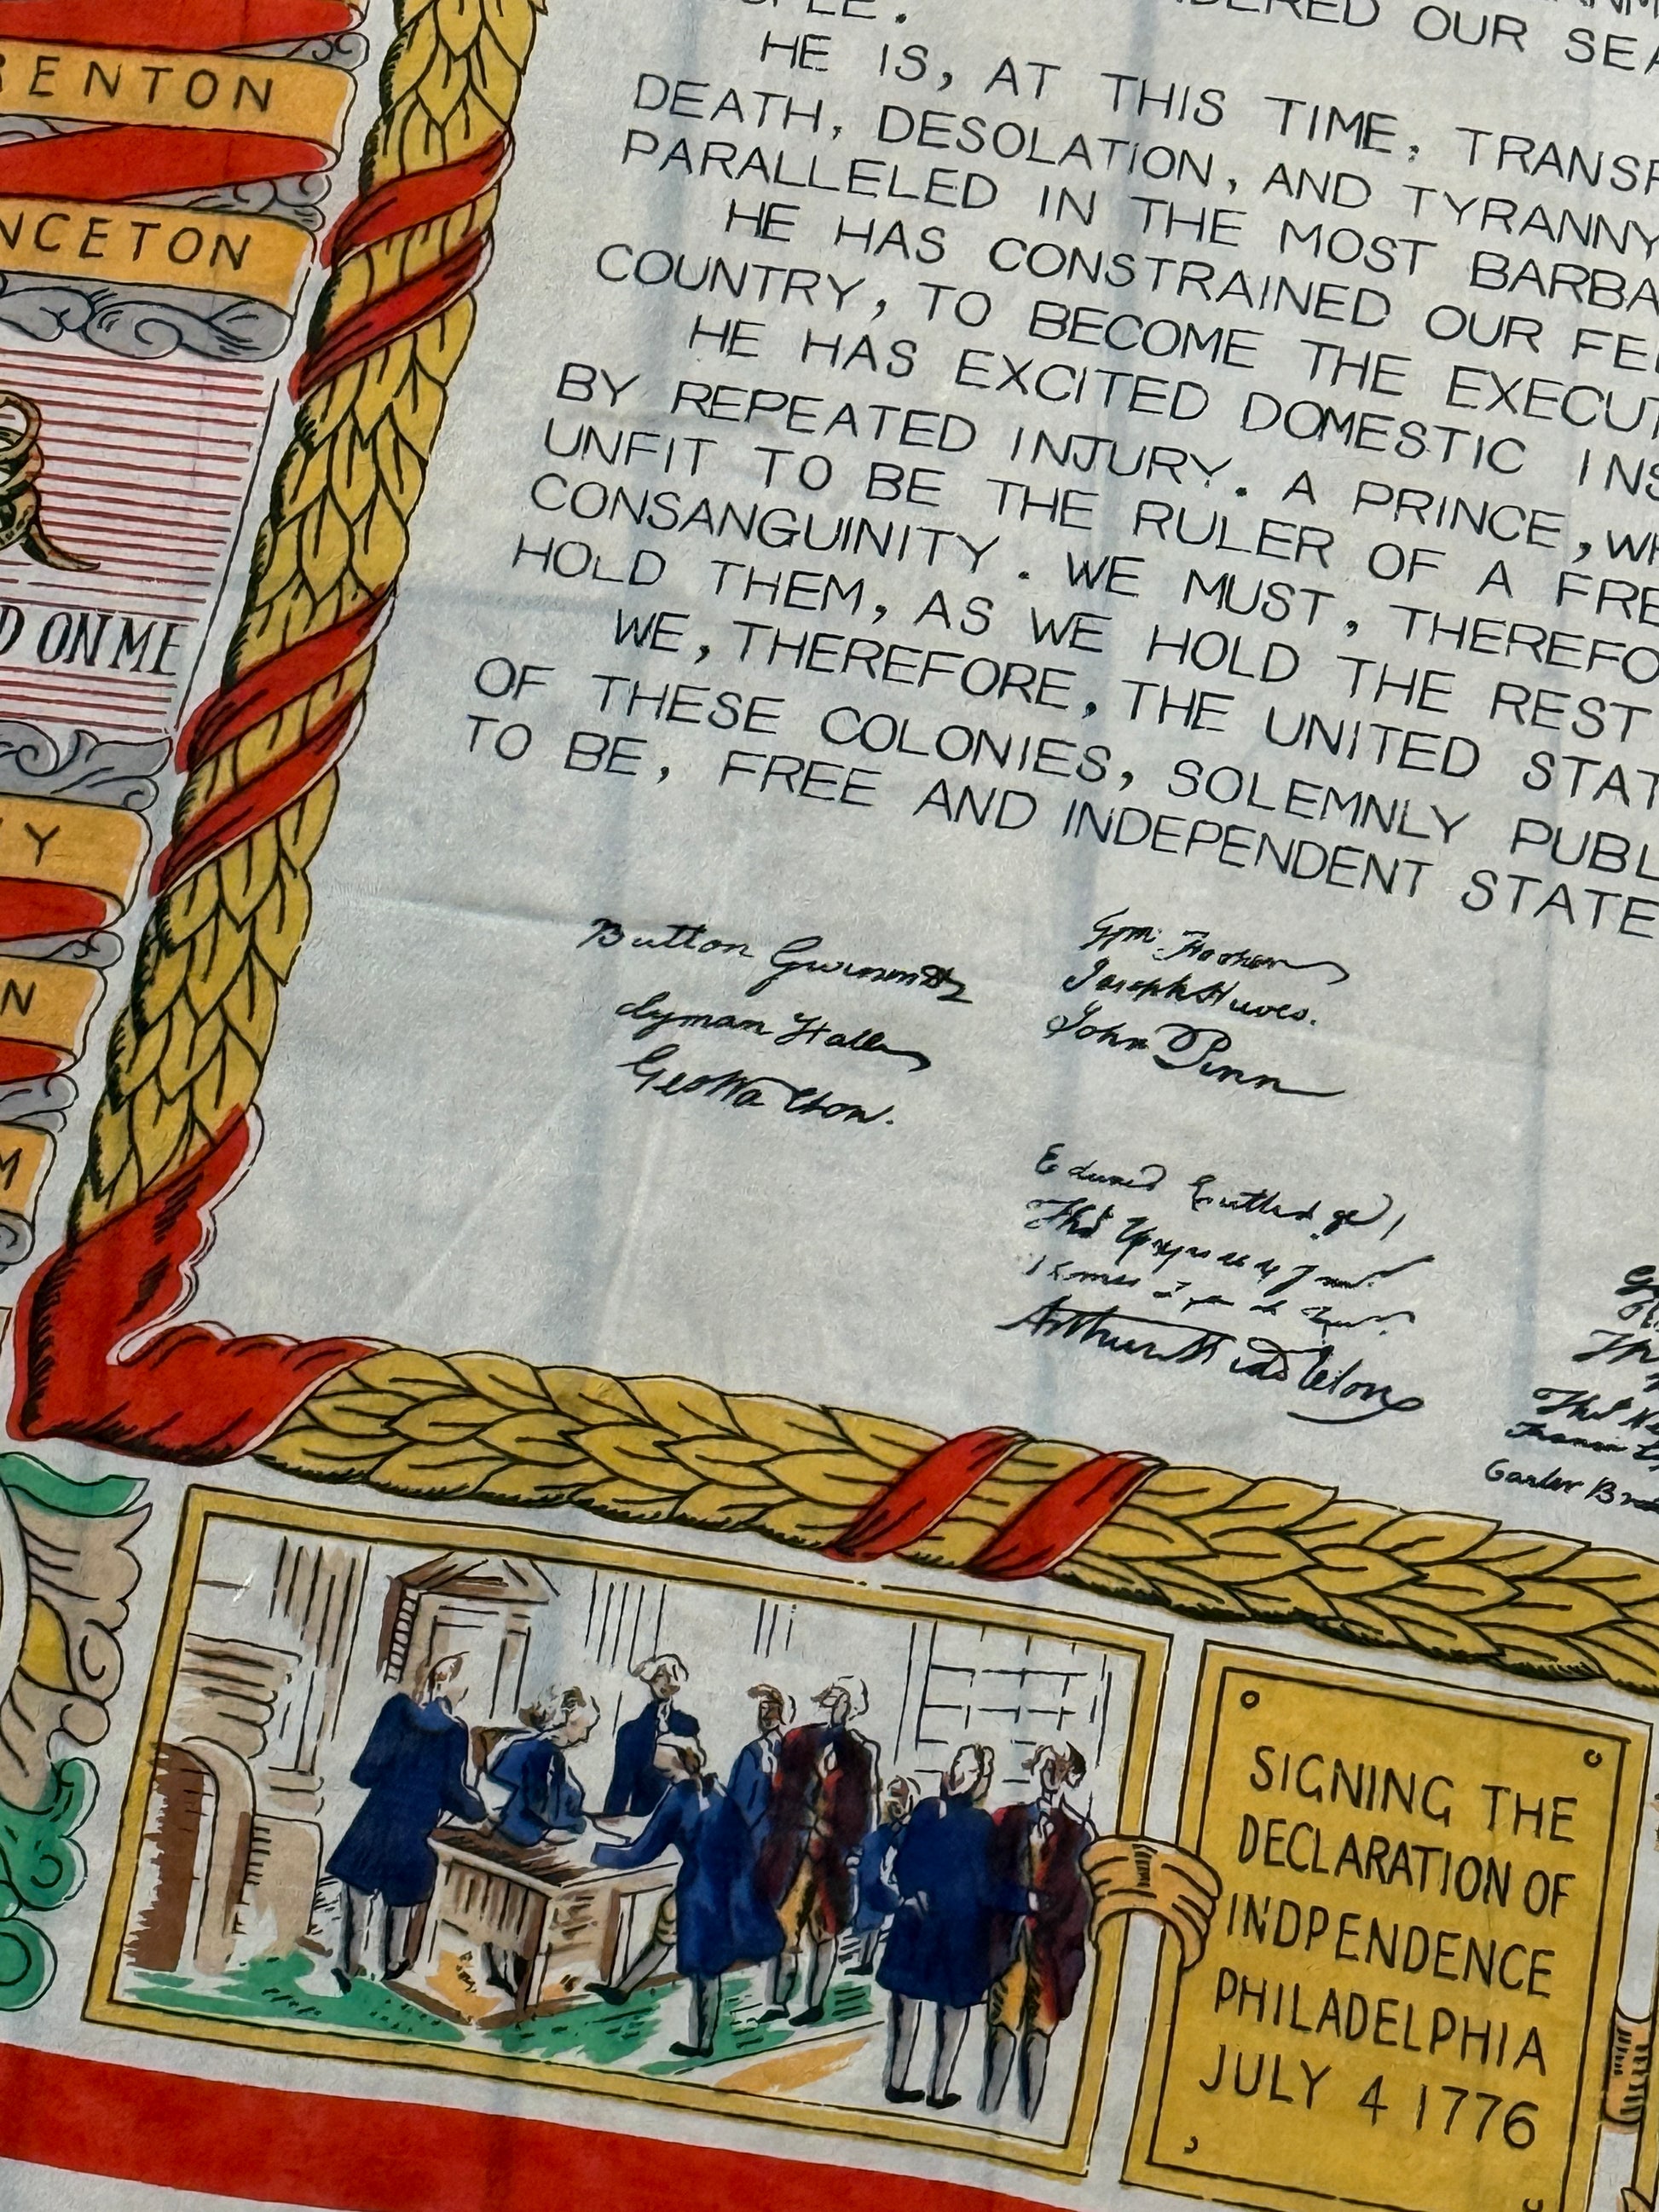 RENTON
NCETON
D ON ME
Y
N
M
PLE.
DERED OUR SEA
HE IS, AT THIS TIME, TRANSP
DEATH, DESOLATION, AND TYRANNY
PARALLELED IN THE MOST BARBA
HE HAS CONSTRAINED OUR FEL
COUNTRY, TO BECOME THE EXECUT
HE HAS EXCITED DOMESTIC INS
BY REPEATED INJURY. A PRINCE, WH
UNFIT TO BE THE RULER OF A FRE
CONSANGUINITY. WE MUST, THEREFO
HOLD THEM, AS WE HOLD THE REST
WE, THEREFORE, THE UNITED STAT
OF THESE COLONIES, SOLEMNLY PUBL
TO BE, FREE AND INDEPENDENT STATE
Button Gwinnett
Lyman Hall
Geo Walton.
Joseph Hewes.
John Penn
Edward Rutledge
Arthur Middleton
SIGNING THE
DECLARATION OF
INDPENDENCE
PHILADELPHIA
JULY 4 1776